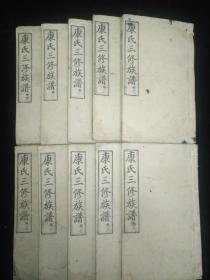 康氏三修族譜
康氏三修族譜
康氏三修族譜
康氏三修族譜
康氏三修族譜
康氏三修族譜
康氏三修族譜
康氏三修族譜
康氏三修族譜
康氏三修族譜